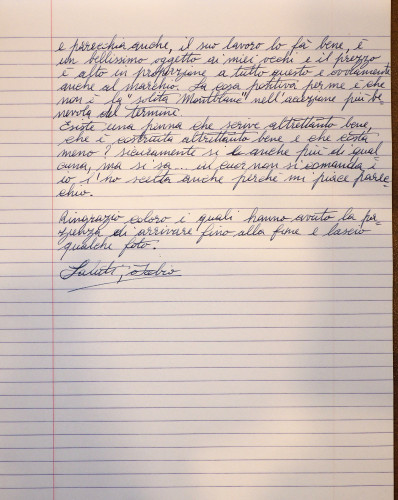 e parecchia anche, il suo lavoro lo fà bene, è
un bellissimo oggetto ai miei occhi e il prezzo
è alto in proporzione a tutto questo e ovviamente
anche al marchio. La cosa positiva per me è che
non è la "solita Montblanc" nell'accezione più be-
nevola del termine.
Esiste una penna che scrive altrettanto bene,
che è costruita altrettanto bene e che costi
meno? sicuramente si e anche più di qual
cuna, ma si sa... in cuor non si comanda è
io l'ho scelta anche perchè mi piace parec-
chio.
Ringrazio coloro i quali hanno avuto la pa-
zienza di arrivare fino alla fine e lascio
qualche foto.
Saluti, Fabio